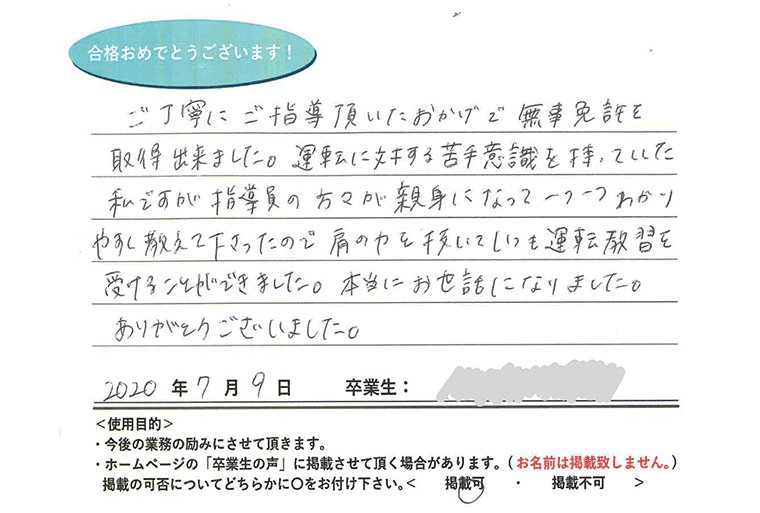 合格おめでとうございます！
ご丁寧にご指導頂いたおかげで無事免許を
取得出来ました。運転に対する苦手意識を持っていた
私ですが指導員の方々が親身になって一つ一つわかり
やすく教えて下さったので肩の力を抜いていつも運転教習を
受けることができました。本当にお世話になりました。
ありがとうございました。
2020年7月9日 卒業生：
＜使用目的＞
・今後の業務の励みにさせて頂きます。
・ホームページの「卒業生の声」に掲載させて頂く場合があります。（お名前は掲載致しません。）
掲載の可否についてどちらかに〇をお付け下さい。＜ 掲載可 ・ 掲載不可 ＞